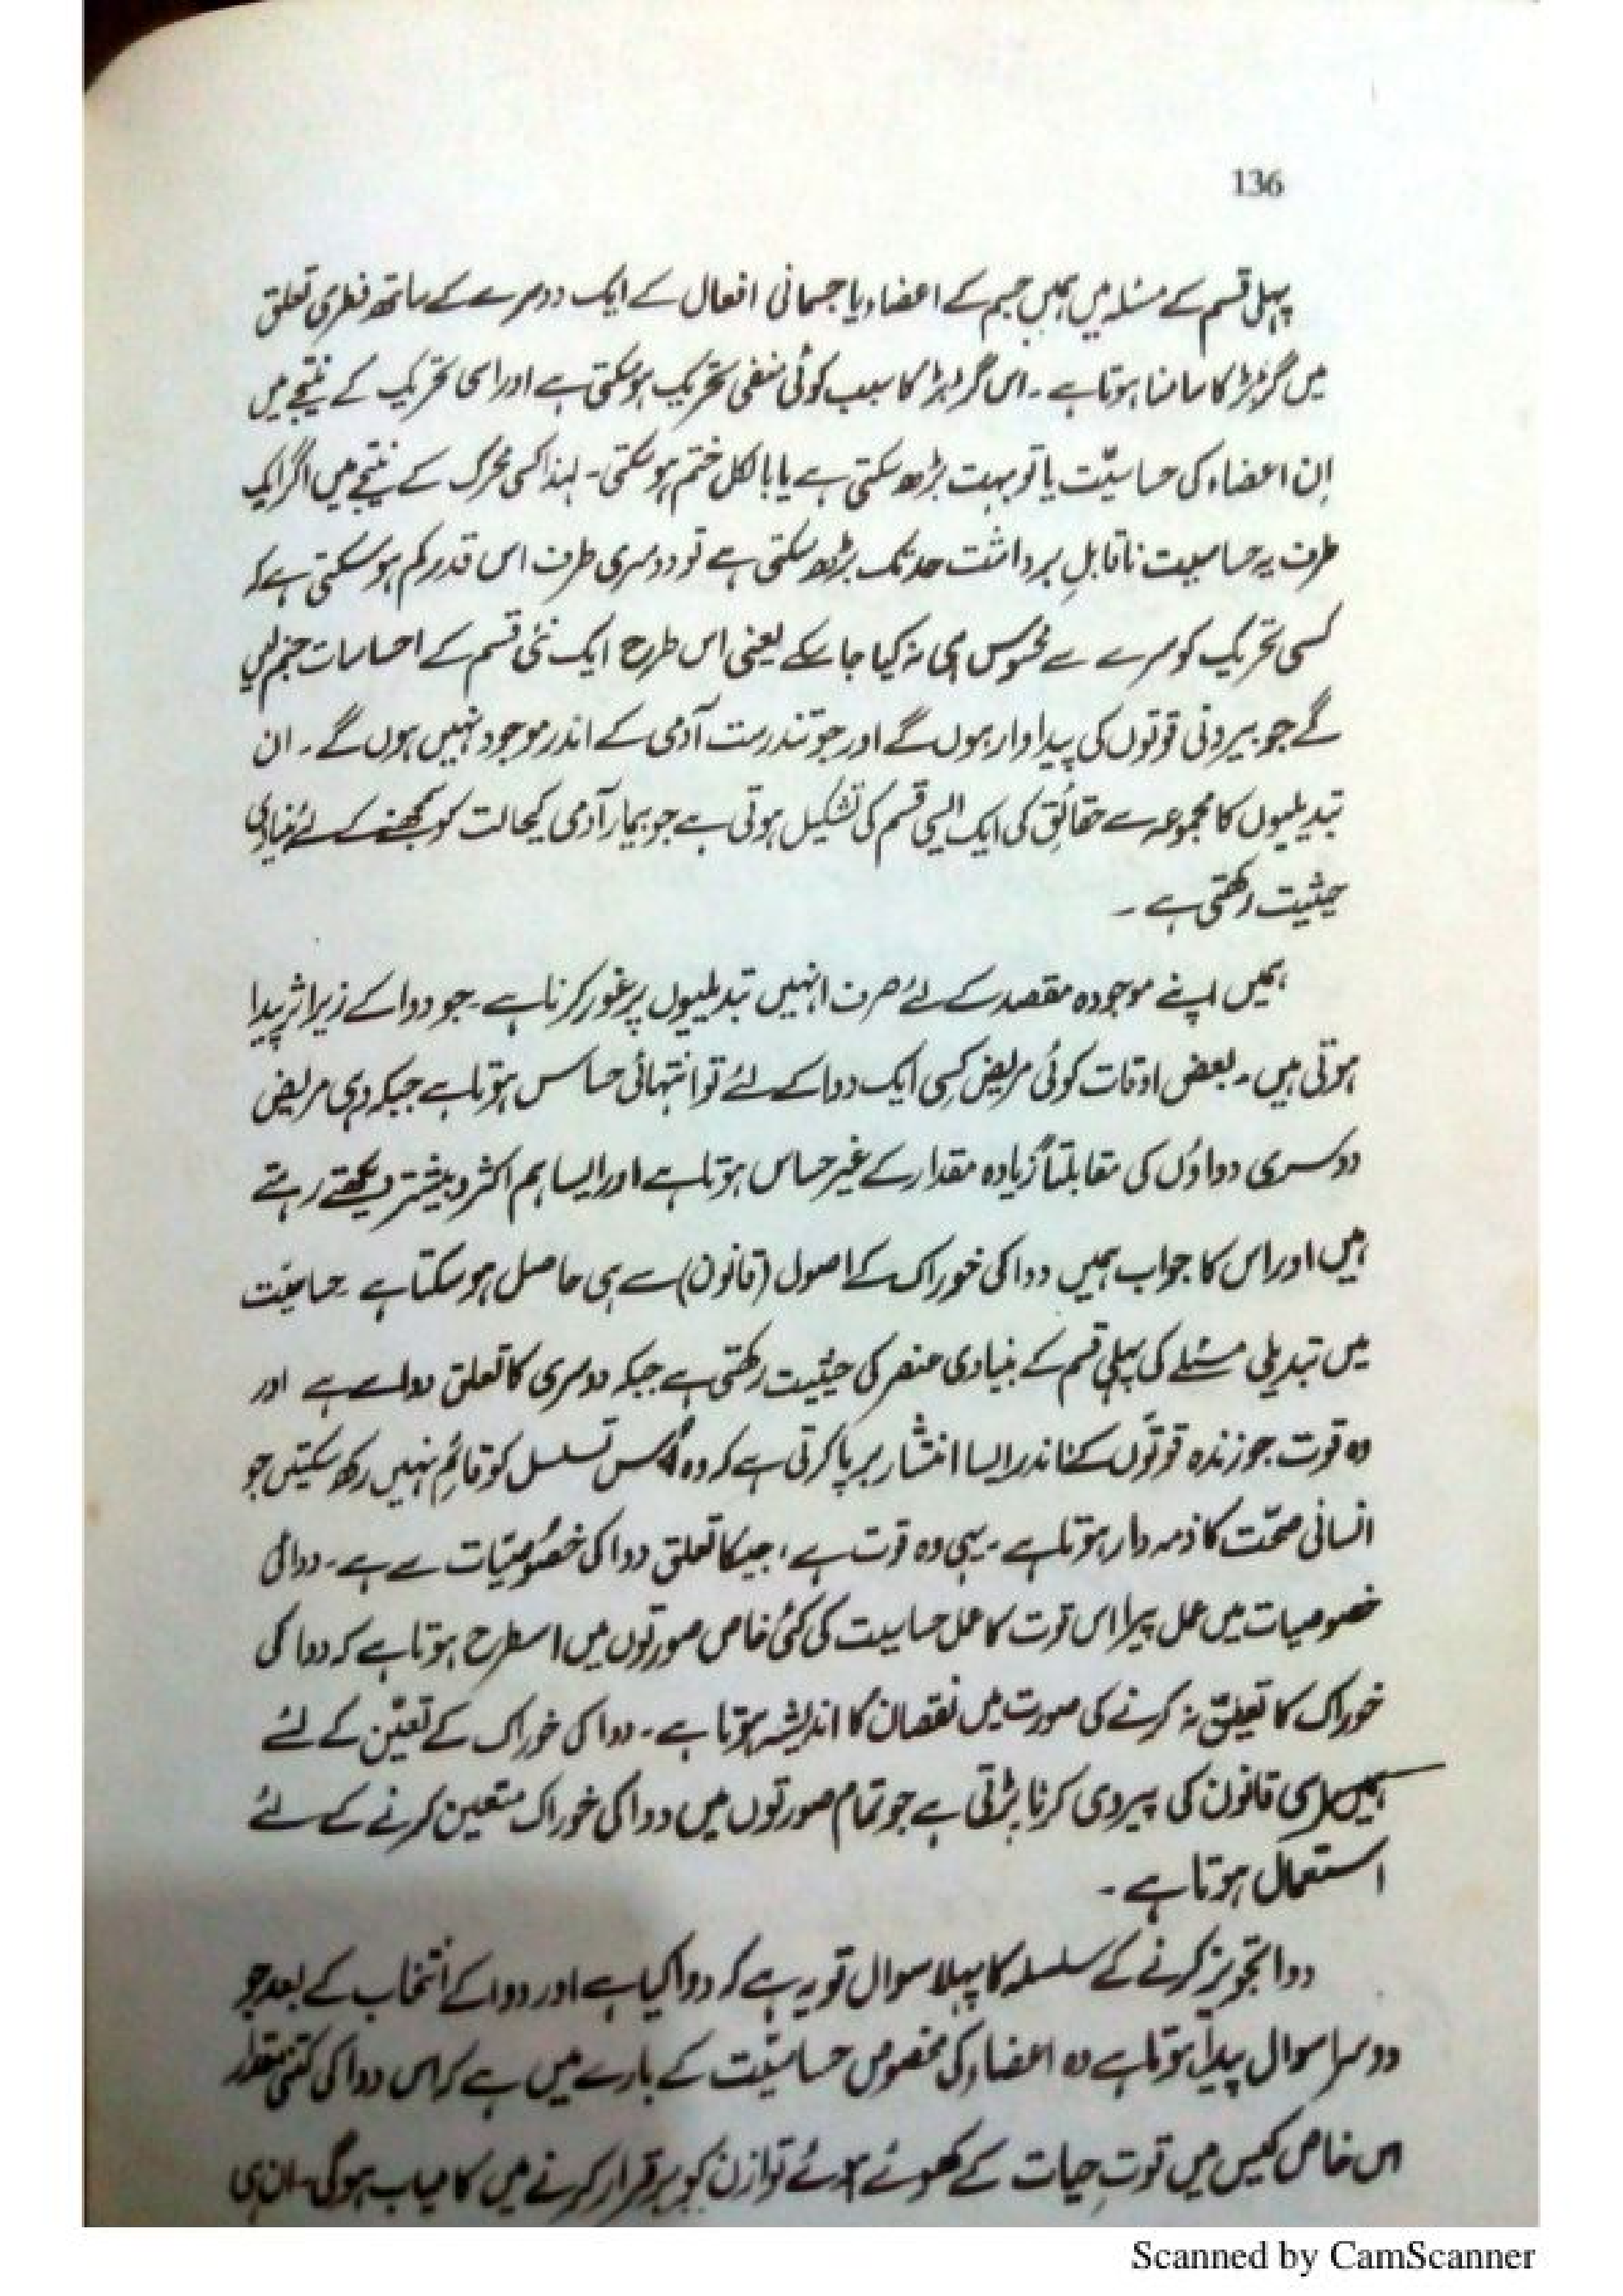 136
پہلی قسم کے مسئلہ میں ہمیں جسم کے اعضاء یا جسمانی افعال کے ایک دوسرے کے ساتھ فطری تعلق
میں گڑبڑ کا سامنا ہوتا ہے ۔ اس گڑبڑ کا سبب کوئی منفی تحریک ہوسکتی ہے اور اسی تحریک کے نتیجے میں
اِن اعضاء کی حساسیّت یا تو بہت بڑھ سکتی ہے یا بالکل ختم ہوسکتی۔ لہذا کسی محرک کے نتیجے میں اگر ایک
طرف یہ حساسیت ناقابلِ برداشت حد تک بڑھ سکتی ہے تو دوسری طرف اس قدر کم ہوسکتی ہے کہ
کسی تحریک کو سرے سے محسوس ہی نہ کیا جاسکے یعنی اس طرح ایک نئی قسم کے احساسات جنم لیں
گے جو بیرونی قوتوں کی پیداوار ہوں گے اور جو تندرست آدمی کے اندر موجود نہیں ہوں گے ۔ ان
تبدیلیوں کا مجموعہ سے حقائق کی ایک ایسی قسم کی تشکیل ہوتی ہے جو بیمار آدمی کیحالت کو سمجھنے کے لئے بنیادی
حیثیت رکھتی ہے ۔
ہمیں اپنے موجودہ مقصد کے لئے صرف انہیں تبدیلیوں پر غور کرنا ہے ۔ جو دوا کے زیر اثر پیدا
ہوتی ہیں ۔ بعض اوقات کوئی مریض کسِی ایک دوا کے لئے تو انتہائی حساس ہوتا ہے جبکہ وہی مریض
دوسری دواؤں کی مقابلتاً زیادہ مقدار کے غیر حساس ہوتا ہے اور ایسا ہم اکثر و بیشتر دیکھتے رہتے
ہیں اور اس کا جواب ہمیں دوا کی خوراک کے اصول (قانون) سے ہی حاصل ہوسکتا ہے ۔ حساسیّت
میں تبدیلی مسئلے کی پہلی قسم کے بنیادی عنصر کی حیثیت رکھتی ہے جبکہ دوسری کا تعلق دوا سے ہے اور
وہ قوت جو زندہ قوتّوں کے اندر ایسا انتشار برپا کرتی ہے کہ وہ اُس تسلسل کو قائم نہیں رکھ سکتیں جو
انسانی صحّت کا ذمہ دار ہوتا ہے ۔ یہی وہ قوت ہے ، جسکا تعلق دوا کی خصُوصیّات سے ہے ۔ دوا کی
خصوصیات میں عمل پیرا اس قوت کا عمل حساسیت کی کئی خاص صورتوں میں اسطرح ہوتا ہے کہ دوا کی
خوراک کا تعیّن نہ کرنے کی صورت میں نقصان کا اندیشہ ہوتا ہے ۔ دوا کی خوراک کے تعیّن کے لئے
ہمیں اسی قانون کی پیروی کرنا پڑتی ہے جو تمام صورتوں میں دوا کی خوراک متعین کرنے کے لئے
استعمال ہوتا ہے ۔
دوا تجویز کرنے کے سلسلہ کا پہلا سوال تو یہ ہے کہ دوا کیا ہے اور دوا کے انتخاب کے بعد جو
دوسرا سوال پیدا ہوتا ہے وہ اعضاء کی مخصوص حساسیّت کے بارے میں ہے کہ اس دوا کی کتنی مقدار
اس خاص کیس میں قوتِ حیات کے کھوئے ہوئے توازن کو برقرار کرنے میں کامیاب ہوگی ۔ ان ہی
Scanned by CamScanner